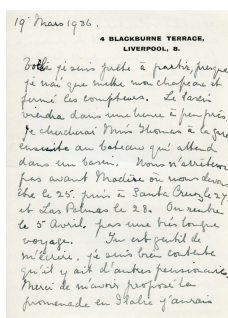 19 Mars 1936.
4 BLACKBURNE TERRACE,
LIVERPOOL, 8.
Voilà je suis prête à partir, presque
je n'ai que mettre mon chapeau et
fermé les compteurs. Le taxi
viendra dans une heure à peu près.
Je chercherai Miss Thomas à la gare
ensuite au bateau qui attend
dans un bassin. Nous n'arrêterons
pas avant Madère où nous devons
être le 25. puis à Santa Cruz le 27
et Las Palmas le 28. On rentre
le 5 Avril, pas une très longue
voyage. Tu est gentil de
m'écrire, je suis bien contente
qu'il y ait d'autres pensionnaires.
Merci de m'avoir proposé la
promenade en Italie j'aurais